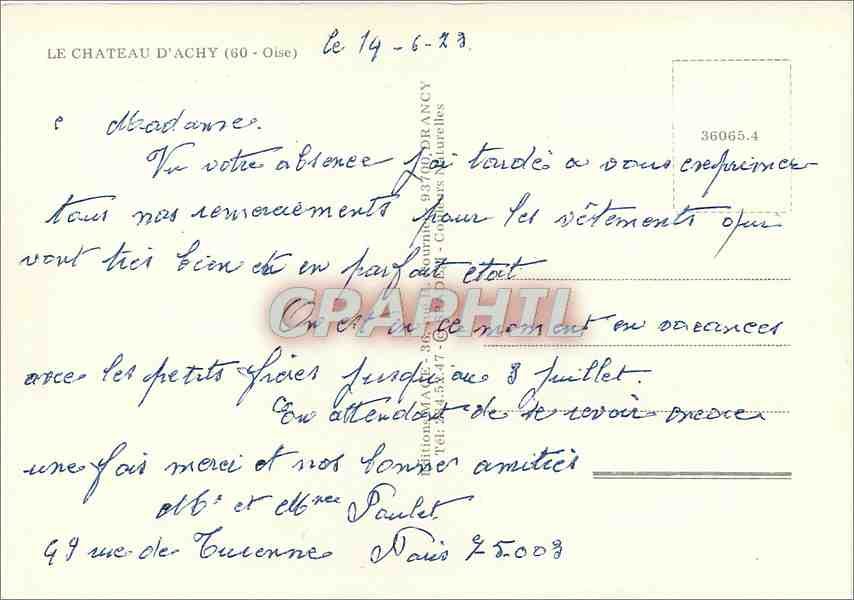 LE CHATEAU D'ACHY (60 - Oise) le 14-6-23.
36065.4
Madame.
Vu votre absence j'ai tardé a vous exprimer
tous nos remerciements pour les vêtements qui
vont très bien et en parfait état.
On est en ce moment en vacances
avec les petits frères jusqu'au 3 juillet.
En attendant de se revoir encore
une fois merci et nos bonnes amitiés
Mr et Mme Paulet
49 rue de Turenne Paris 75.003
Editions MAGE - 36, 93700 DRANCY
Couleurs Naturelles
CPAPHIL